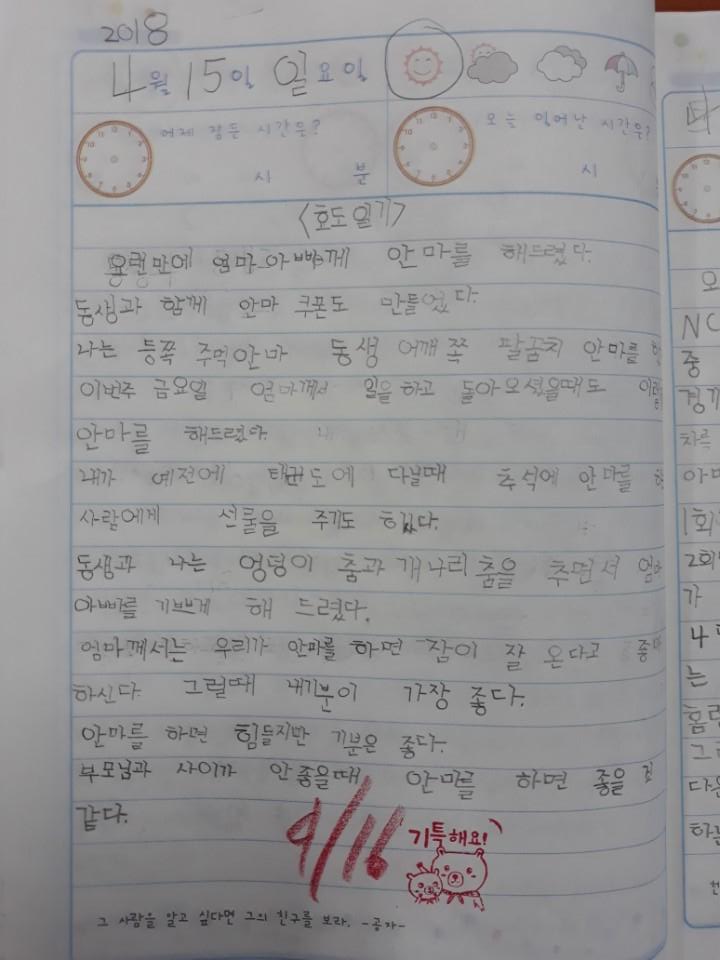 2018
4월 15일 일요일
어제 잠든 시간은?
시 분
오늘 일어난 시간은?
시
<효도일기>
오랜만에 엄마아빠께 안마를 해드렸다.
동생과 함께 안마 쿠폰도 만들었다.
나는 등쪽 주먹안마 동생 어깨쪽 팔꿈치 안마를
이번주 금요일 엄마께서 일을 하고 돌아오셨을때도
안마를 해드렸다.
내가 예전에 태권도에 다닐때 추석에 안마를
사람에게 선물을 주기도 했다.
동생과 나는 엉덩이 춤과 개나리 춤을 추면서
아빠를 기쁘게 해 드렸다.
엄마께서는 우리가 안마를 하면 잠이 잘 온다고
하신다. 그럴때 내기분이 가장 좋다.
안마를 하면 힘들지만 기분은 좋다.
부모님과 사이가 안좋을때 안마를 하면 좋을 것
같다.
4/16
기특해요!
그 사람을 알고 싶다면 그의 친구를 보라. -공자-
NC
중
경기
1회
2회
가
4
는